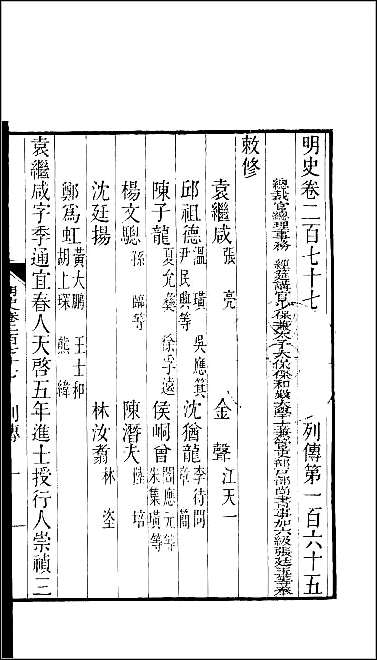 明史卷二百七十七 列傳第一百六十五
總裁官總理事務 經筵講官少保兼太子太保保和殿大學士兼管吏部戶部尚書事加六級張廷玉等奉
敕修
袁繼咸 張亮 金聲 江天一
邱祖德 溫璜 吳應箕 尹民興等 沈猶龍 李待問 章簡
陳子龍 夏允彝 徐孚遠 侯峒曾 閻應元等 朱集璜等
楊文驄 孫臨等 陳潛夫 陸培
沈廷揚 林汝翥 林垐
鄭為虹 黃大鵬 王士和 胡上琛 熊緯
袁繼咸字季通宜春人天啓五年進士授行人崇禎三
列傳 一